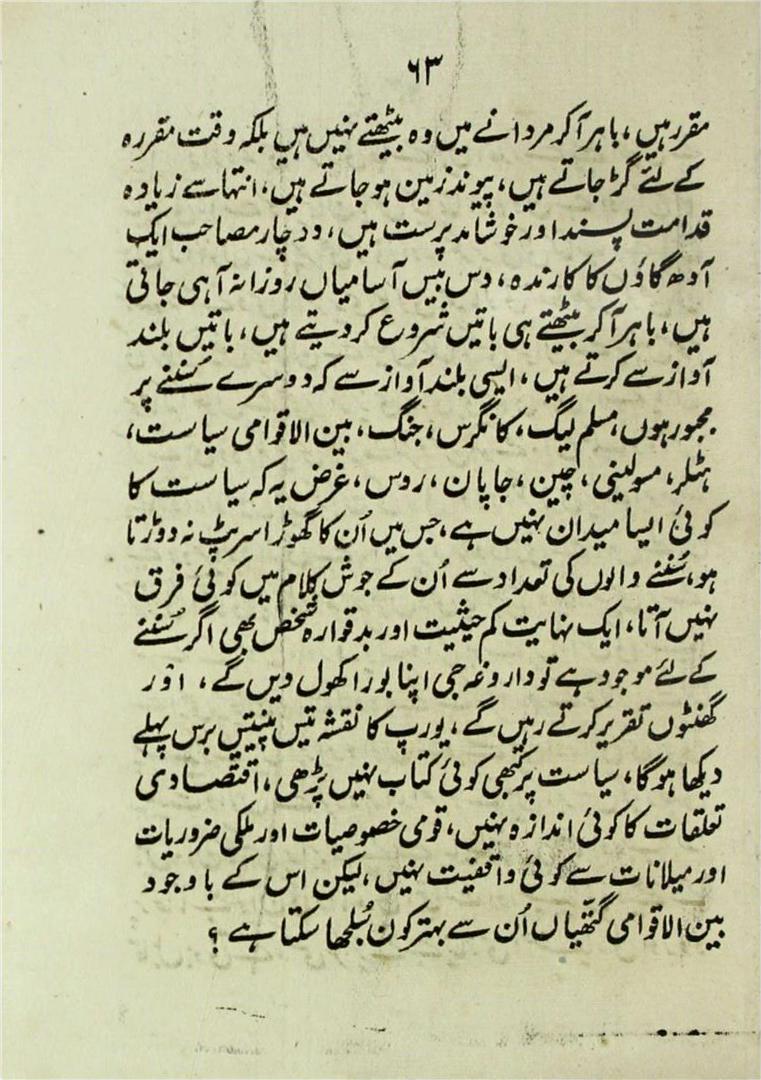 ۶۳
مقرر ہیں، باہر آکر مردانے میں وہ بیٹھتے نہیں ہیں بلکہ وقت مقررہ
کے لئے گڑ جاتے ہیں، پیوند زمین ہو جاتے ہیں، انتہا سے زیادہ
قدامت پسند اور خوشامد پرست ہیں، دو چار مصاحب ایک
آدھ گاؤں کا کارندہ، دس بیس آسامیاں روزانہ آ ہی جاتی
ہیں، باہر آکر بیٹھتے ہی باتیں شروع کر دیتے ہیں، باتیں بلند
آواز سے کرتے ہیں، ایسی بلند آواز سے کہ دوسرے سُننے پر
مجبور ہوں، مسلم لیگ، کانگرس، جنگ، بین الاقوامی سیاست،
ہٹلر، مسولینی، چین، جاپان، روس، غرض یہ کہ سیاست کا
کوئی ایسا میدان نہیں ہے، جس میں اُن کا گھوڑا سرپٹ نہ دوڑتا
ہو، سُننے والوں کی تعداد سے اُن کے جوش کلام میں کوئی فرق
نہیں آتا، ایک نہایت کم حیثیت اور بدقوارہ شخص بھی اگر سُننے
کے لئے موجود ہے تو داروغہ جی اپنا بورا کھول دیں گے، اور
گھنٹوں تقریر کرتے رہیں گے، یورپ کا نقشہ تیس پینتیس برس پہلے
دیکھا ہوگا، سیاست پر کبھی کوئی کتاب نہیں پڑھی، اقتصادی
تعلقات کا کوئی اندازہ نہیں، قومی خصوصیات اور ملکی ضروریات
اور میلانات سے کوئی واقفیت نہیں، لیکن اس کے باوجود
بین الاقوامی گتھیاں اُن سے بہتر کون سُلجھا سکتا ہے؟